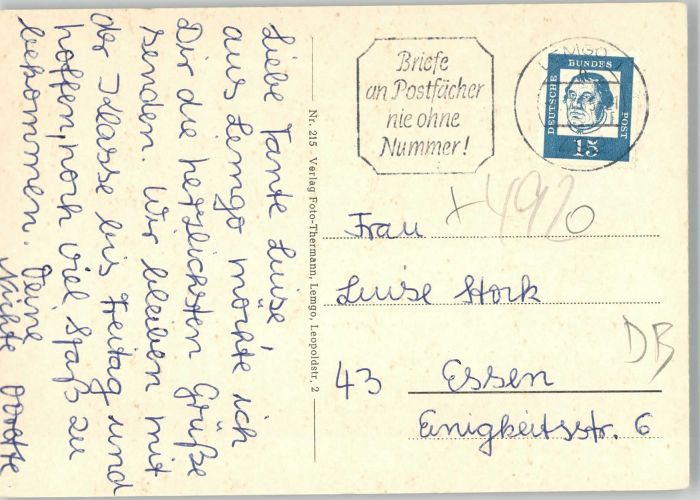 Liebe Tante Luise,
aus Lemgo möchte ich
Dir die herzlichsten Grüße
senden. Wir bleiben mit
der Klasse bis Freitag und
hoffen, noch viel Spaß zu
bekommen. Deine
Nichte
Nr. 215 Verlag Foto-Thermann, Lemgo, Leopoldstr. 2
Briefe
an Postfächer
nie ohne
Nummer!
LEMGO
DEUTSCHE BUNDESPOST
15
+4920
Frau
Luise Stork
43 Essen
Einigkeitsstr. 6
DB